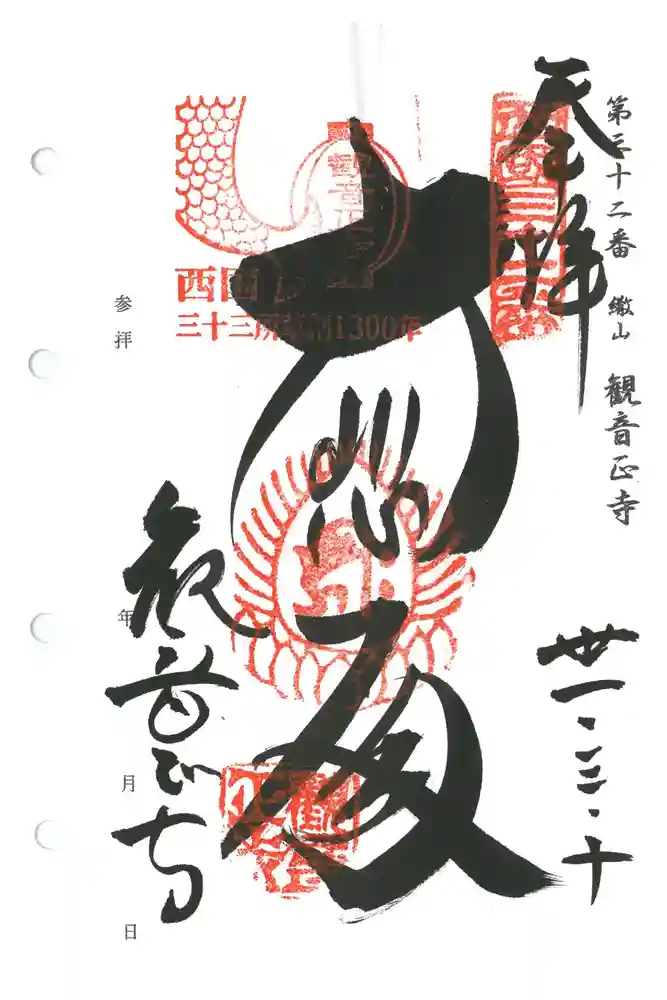 第三十二番 繖山 観音正寺
奉拝
丗一・三・十
大悲殿
観音正寺
西国
三十三所草創1300年
参拝 年 月 日